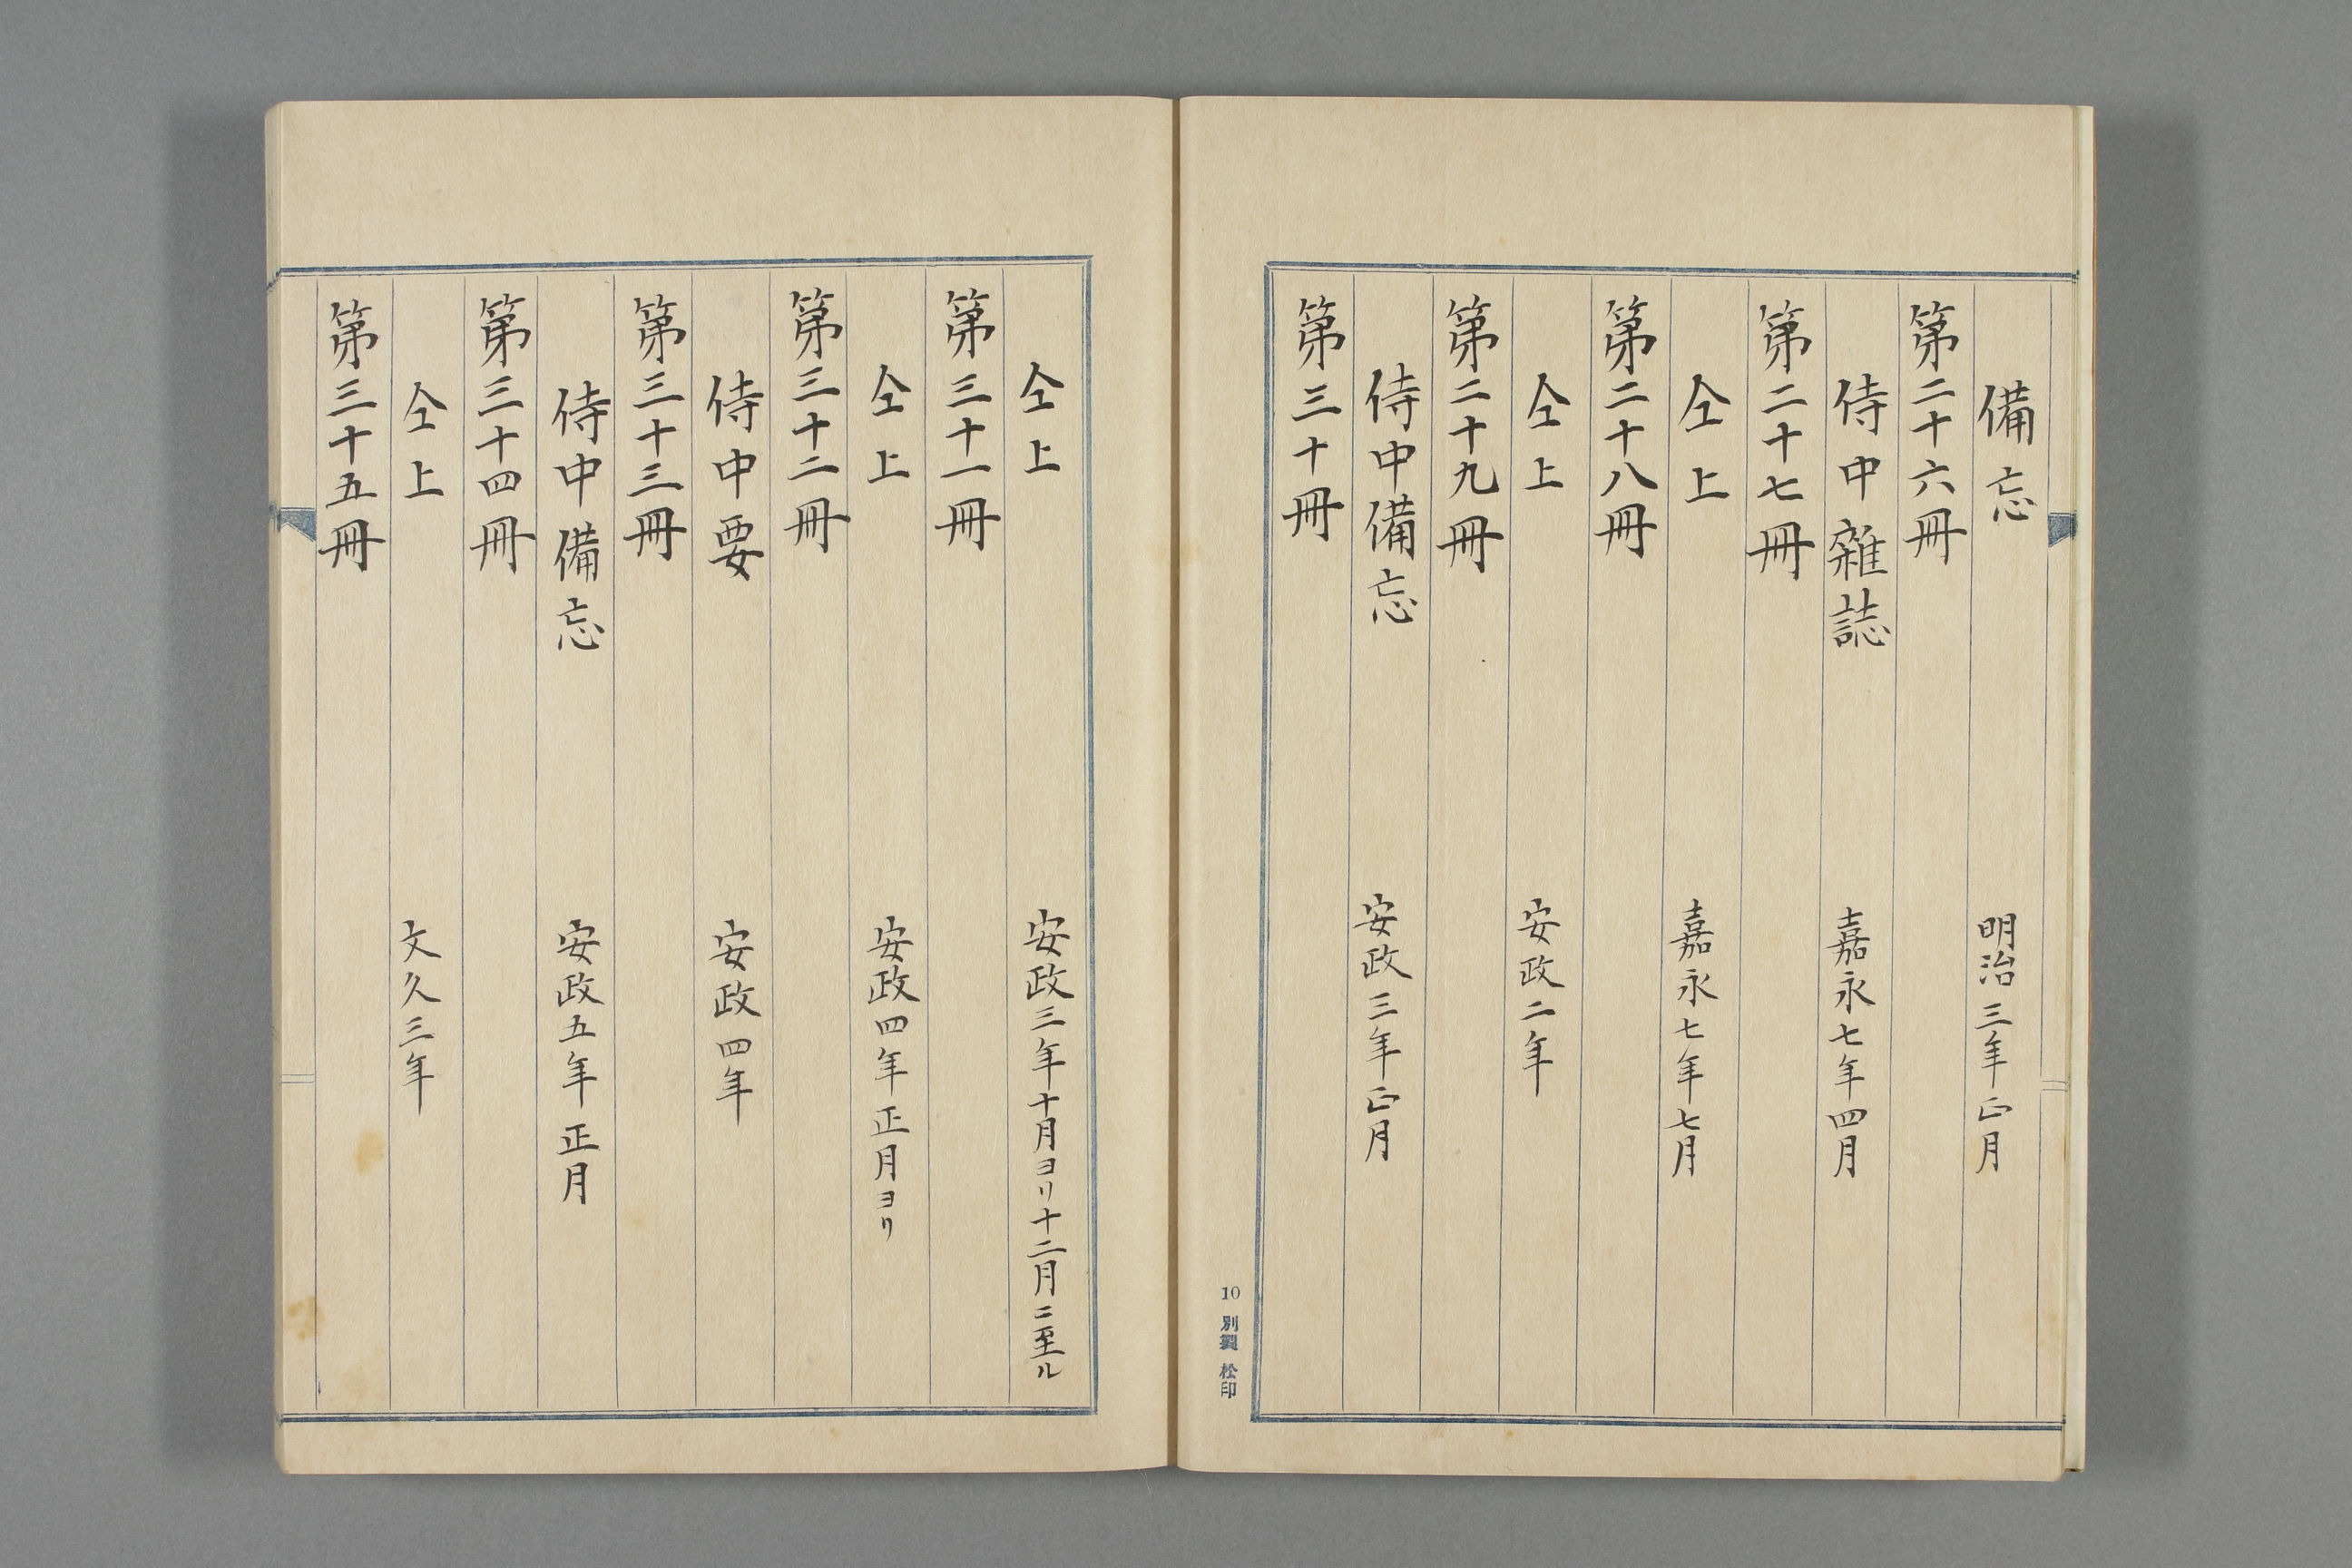 備忘　明治三年正月
第二十六冊
侍中雜誌　嘉永七年四月
第二十七冊
仝上　嘉永七年七月
第二十八冊
仝上　安政二年
第二十九冊
侍中備忘　安政三年正月
第三十冊
10 別製 松印
仝上　安政三年十月ヨリ十二月ニ至ル
第三十一冊
仝上　安政四年正月ヨリ
第三十二冊
侍中要　安政四年
第三十三冊
侍中備忘　安政五年正月
第三十四冊
仝上　文久三年
第三十五冊